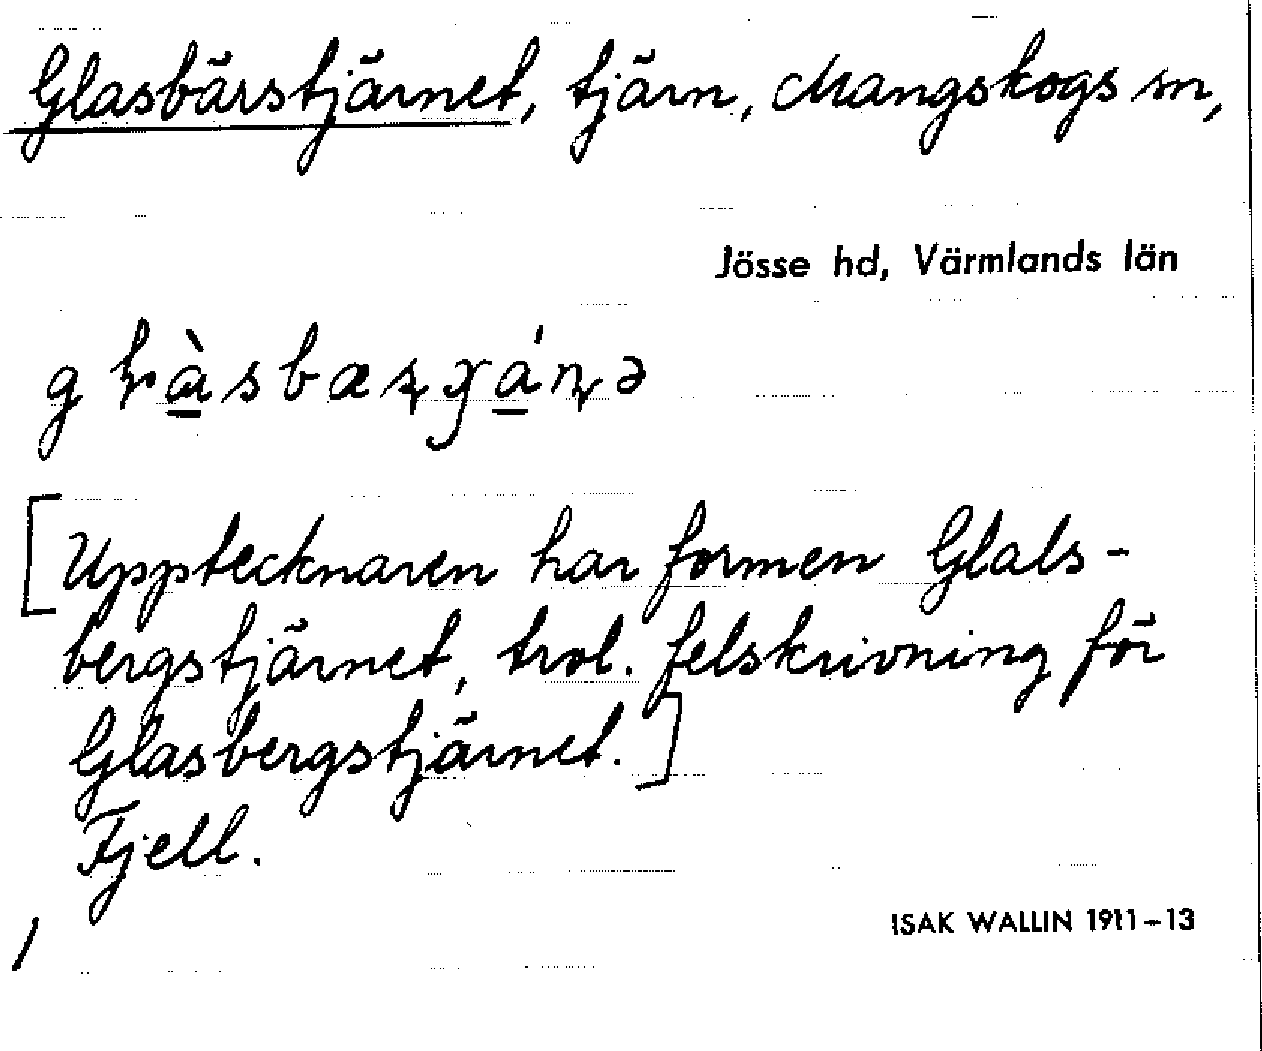 Glasbärstjärnet, tjärn, Mangskogs sn,
Jösse hd, Värmlands län
[Upptecknaren har formen Glals-
bergstjärnet, trol. felskrivning för
Glasbergstjärnet.]
Fjell.
ISAK WALLIN 1911–13